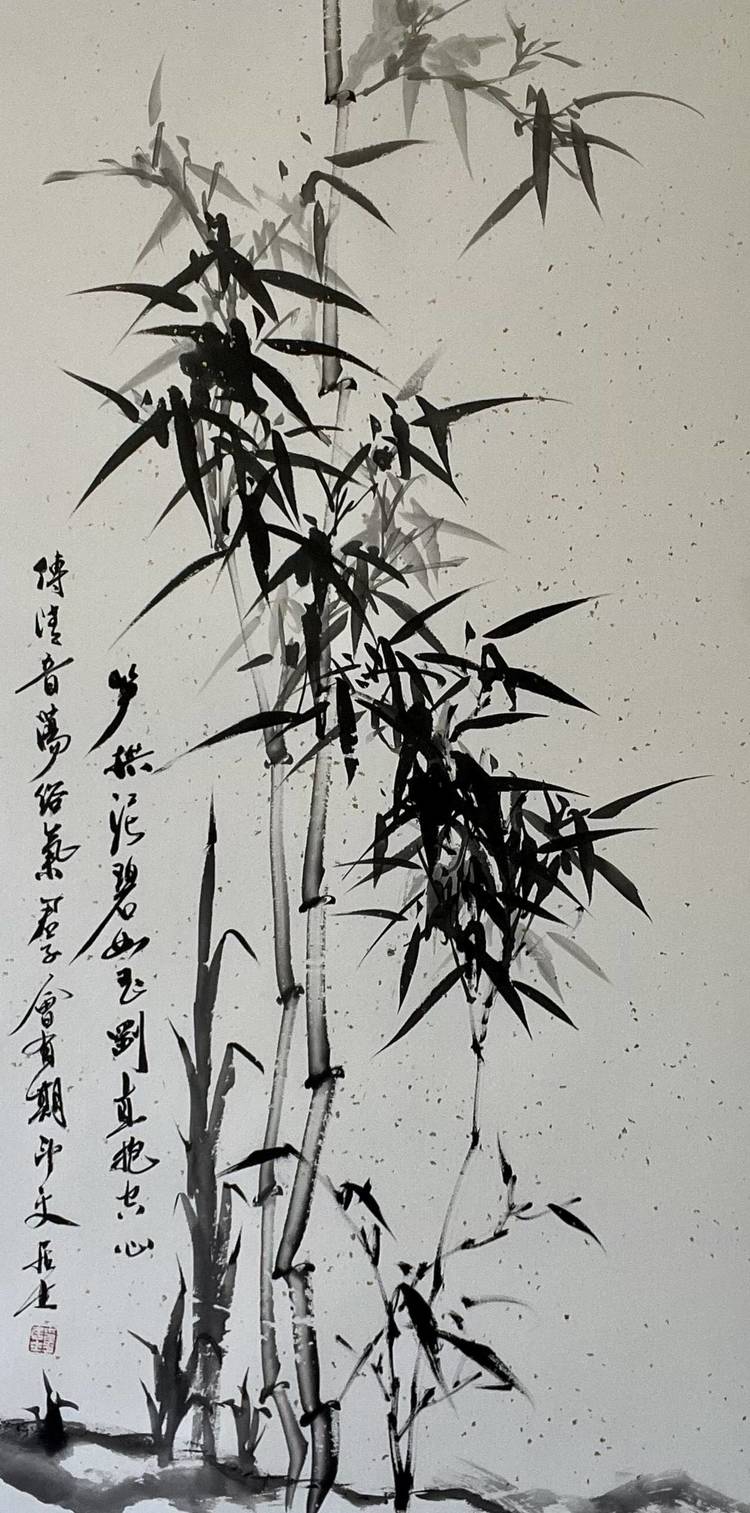 笋泥碧如玉剛直抱空心
傳清音蕩俗氣君子會有期印文居士